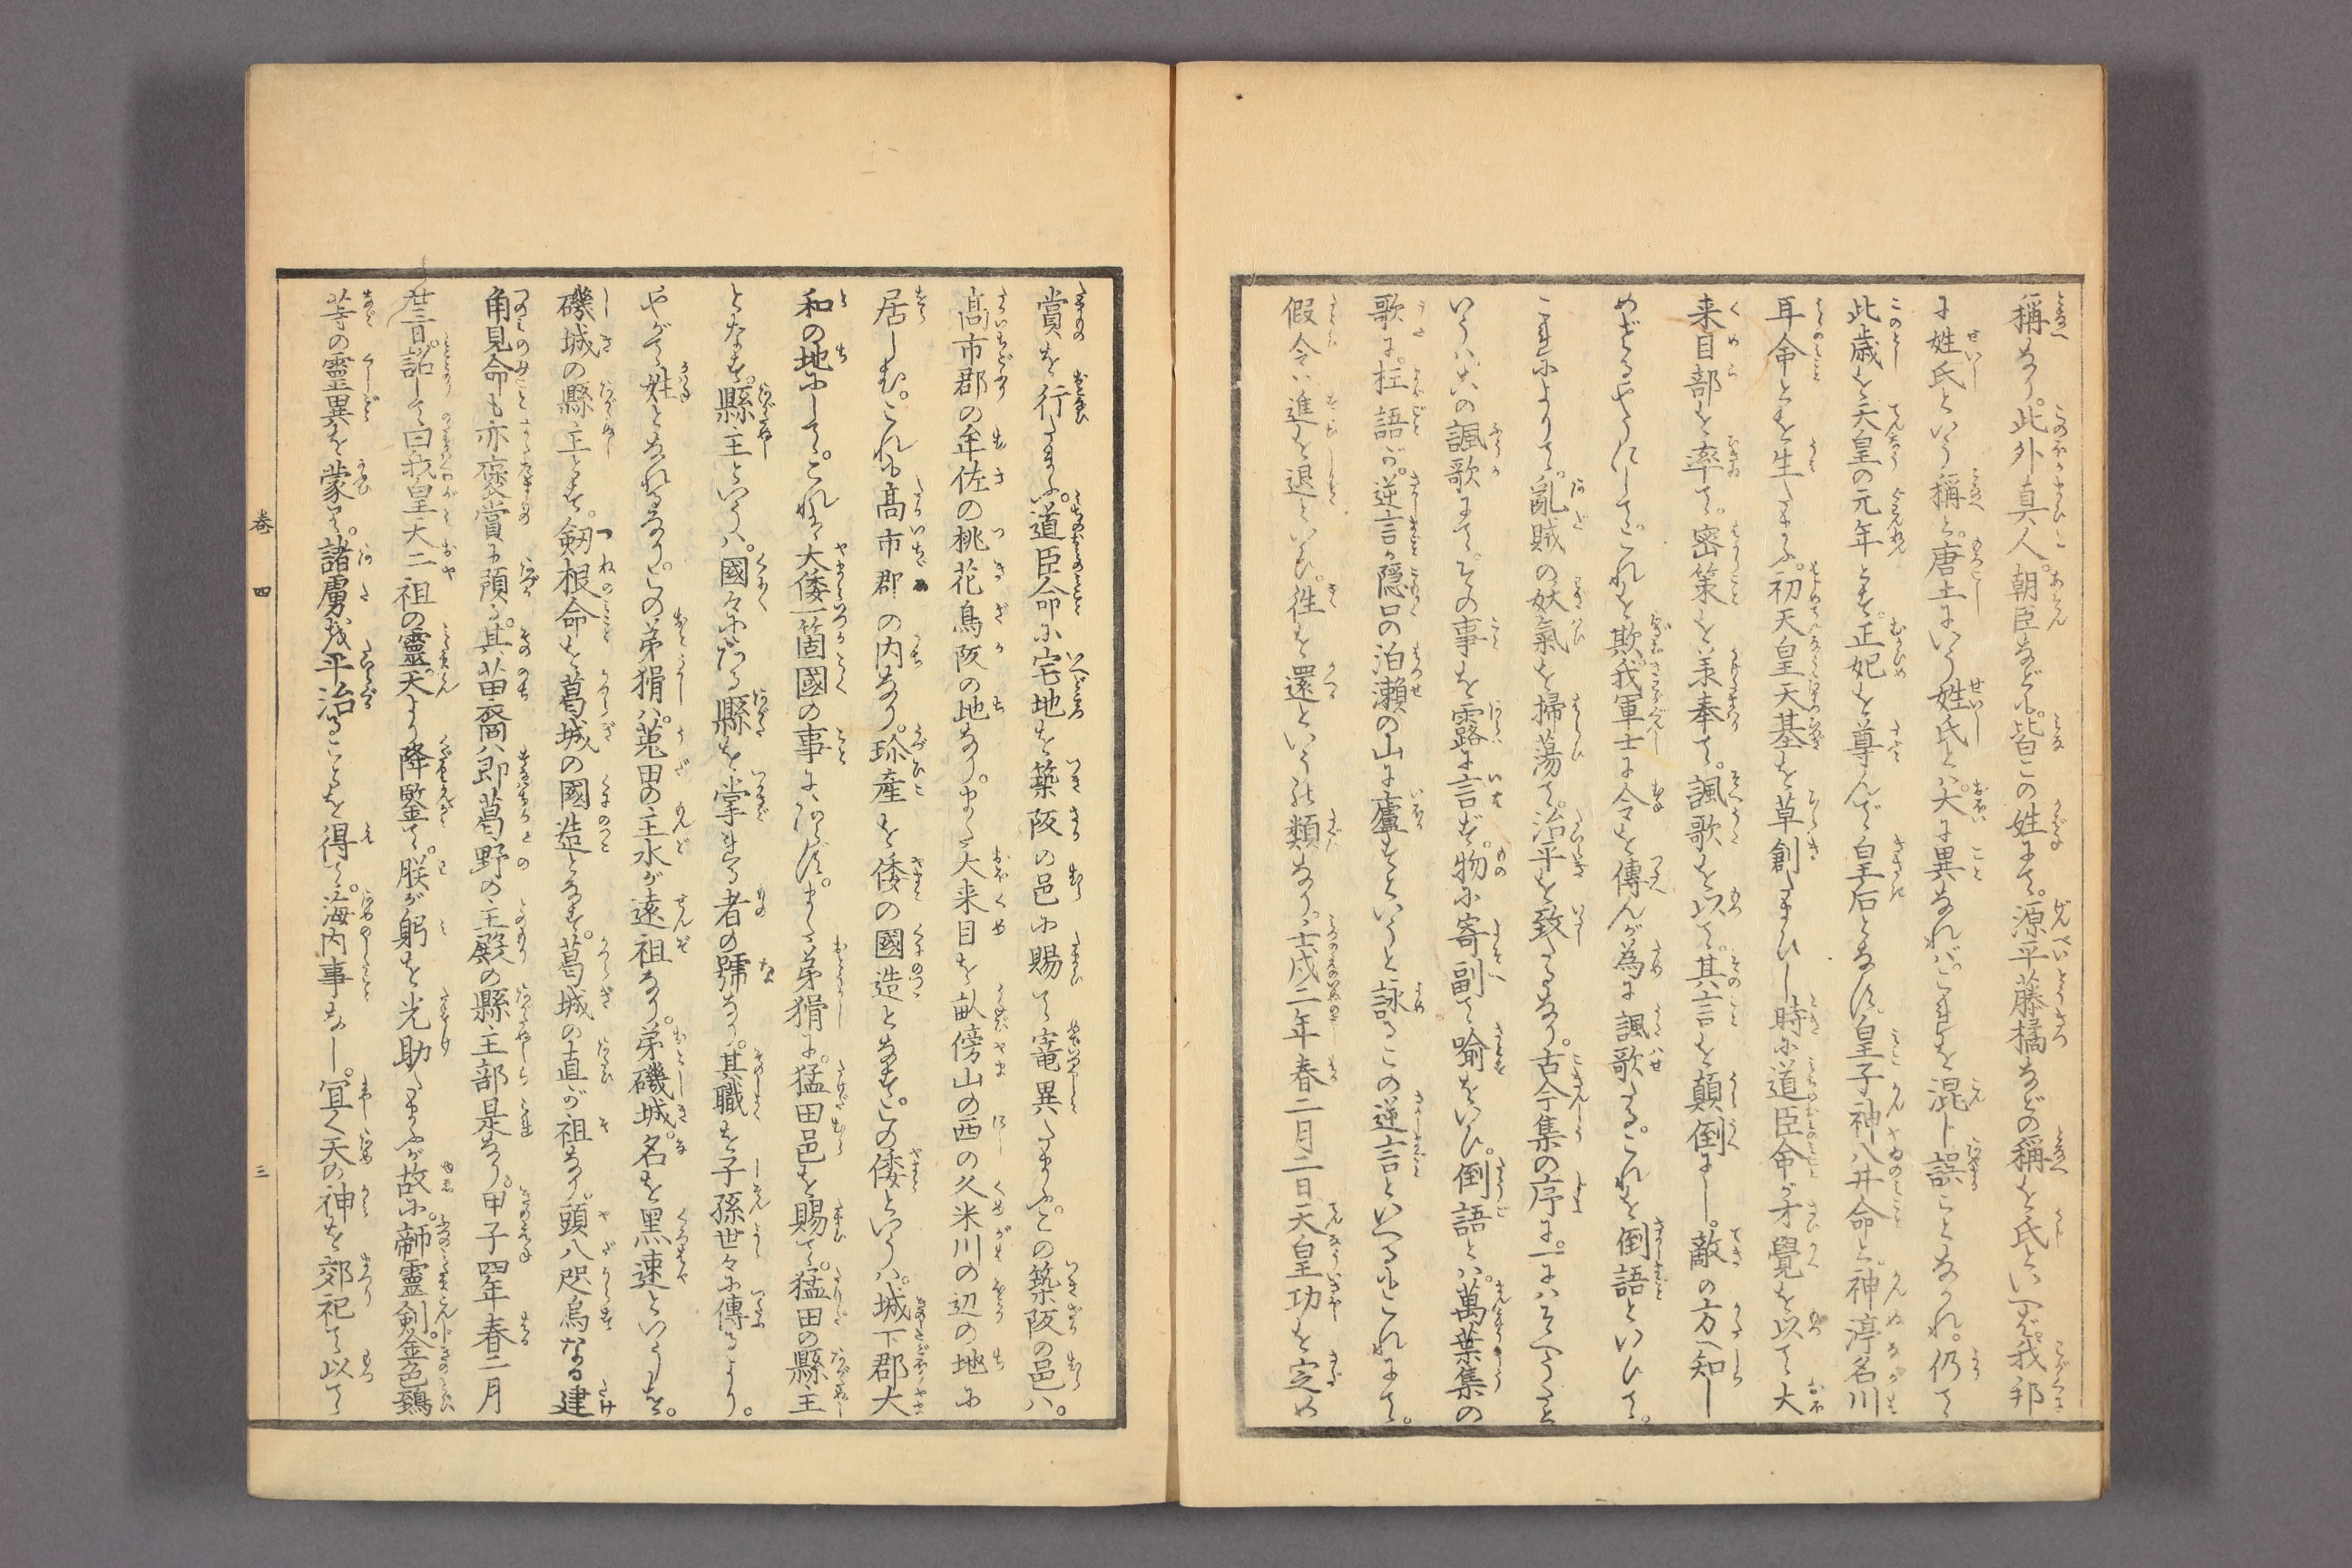 稱なり。此外真人。朝臣などハ。皆この姓にて。源平藤橘などの稱を氏といへど。我邦
に姓氏という稱と。唐土にいう姓氏とハ。大に異なれバ。これを混じ誤ことなかれ。仍て
此歳を天皇の元年とす。正妃を尊んで皇后となす。皇子神八井命と。神渟名川
耳命とを生たまふ。初天皇天基を草創たまひし時に道臣命才覺を以て大
来目部を率て。密策を羕奉て。諷歌を以て。其言を顛倒にし。敵の方へ知し
めざるやうにして。これを欺我軍士に令を傳んが為に諷歌たる。これを倒語といひて。
これによりて。亂賊の妖氣を掃蕩て。治平を致たるなり。古今集の序に。一にハそへうたと
いうハ。六の諷歌にて。その事を露に言ず。物に寄副て喩をいひ。倒語とハ。萬葉集の
歌に。枉語が。逆言か隠口の泊瀬の山に廬すといふと詠るこの逆言といへるもこれにて。
假令ハ進を退といひ。徃を還といふの類なり。壬戌二年春二月二日。天皇功を定め
賞を行たまふ。道臣命に宅地を築阪の邑に賜て寵異たまふ。この築阪の邑ハ。
高市郡の牟佐の桃花鳥阪の地なり。また大来目を畝傍山の西の久米川の辺の地に
居しむ。これも高市郡の内なり。珍彦を倭の國造となす。この倭といふハ。城下郡大
和の地にして。これは大倭一箇國の事にハあらず。また弟猾に。猛田邑を賜て。猛田の縣主
となす。縣主といふハ。國々にある縣を掌れる者の號なり。其職を子孫世々に傳るより。
やがて姓となれるなり。この弟猾ハ。菟田の主水が遠祖なり。弟磯城。名を黒速といふを。
磯城の縣主とす。剱根命を葛城の國造となす。葛城の直が祖なり。頭八咫烏なる建
角見命も亦褒賞に預る。其苗裔ハ即葛野の主殿の縣主部是なり。甲子四年春二月
廿三日。詔して曰我皇大二祖の靈。天より降鑒て。朕が躬を光助たまふが故に。韴靈剣。金色鵄
等の霊異を蒙て。諸虜を平治ることを得て。海内事なし。冥く天の神を郊祀て以て
巻　四　三